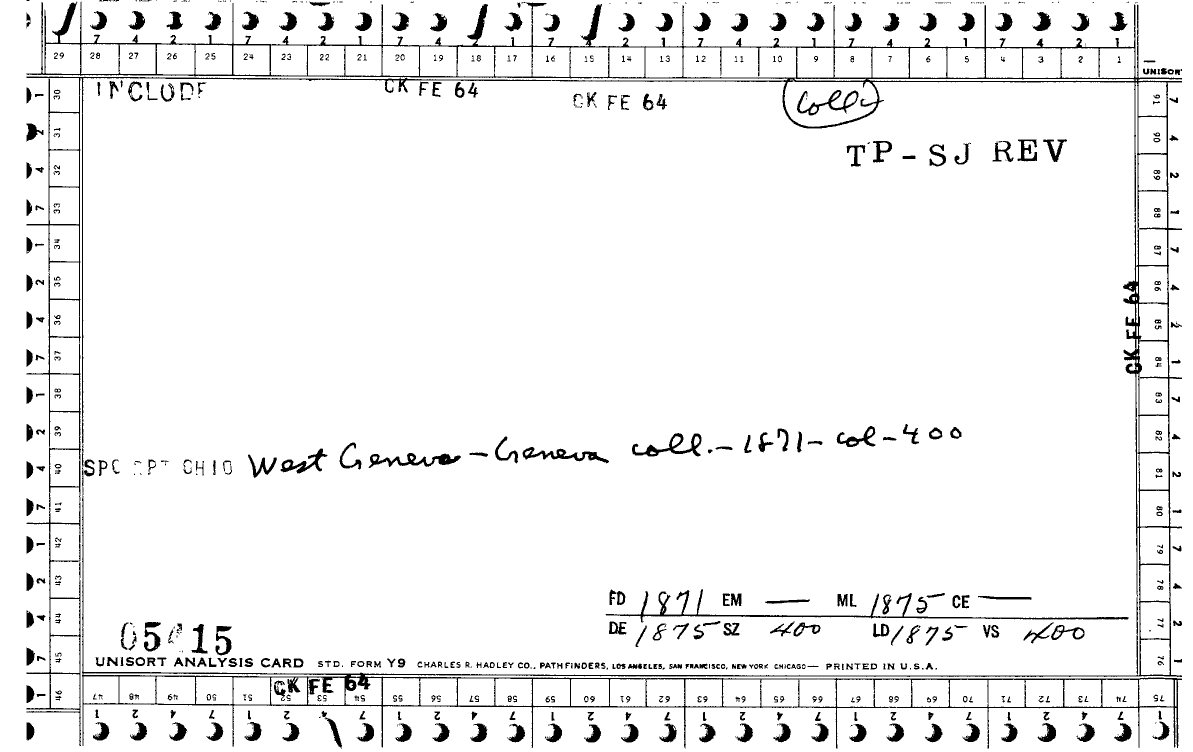 7 4 2 1 7 4 2 1 7 4 2 1 7 4 2 1 7 4 2 1 7 4 2 1 7 4 2 1
29 28 27 26 25 24 23 22 21 20 19 18 17 16 15 14 13 12 11 10 9 8 7 6 5 4 3 2 1
UNISORT
INCLUDE CK FE 64 CK FE 64
TP-SJ REV
CK FE 64
SPC RPT OHIO West Geneva - Geneva coll. - 1871 - col - 400
FD 1871 EM — ML 1875 CE —
DE 1875 SZ 400 LD 1875 VS 400
UNISORT ANALYSIS CARD STD. FORM Y9 CHARLES R. HADLEY CO., PATHFINDERS, LOS ANGELES, SAN FRANCISCO, NEW YORK CHICAGO — PRINTED IN U.S.A.
CK FE 64
47 48 49 50 51 52 53 54 55 56 57 58 59 60 61 62 63 64 65 66 67 68 69 70 71 72 73 74 75
1 2 4 7 1 2 4 7 1 2 4 7 1 2 4 7 1 2 4 7 1 2 4 7 1 2 4 7 1